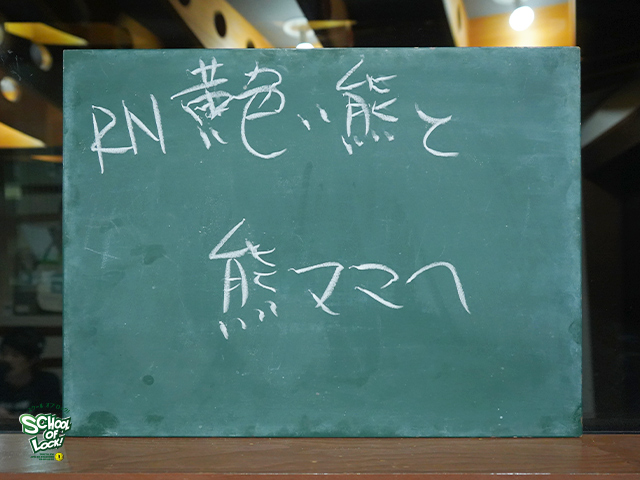 RN 黄色い熊と
熊ママへ
SCHOOL
OF
LOCK!